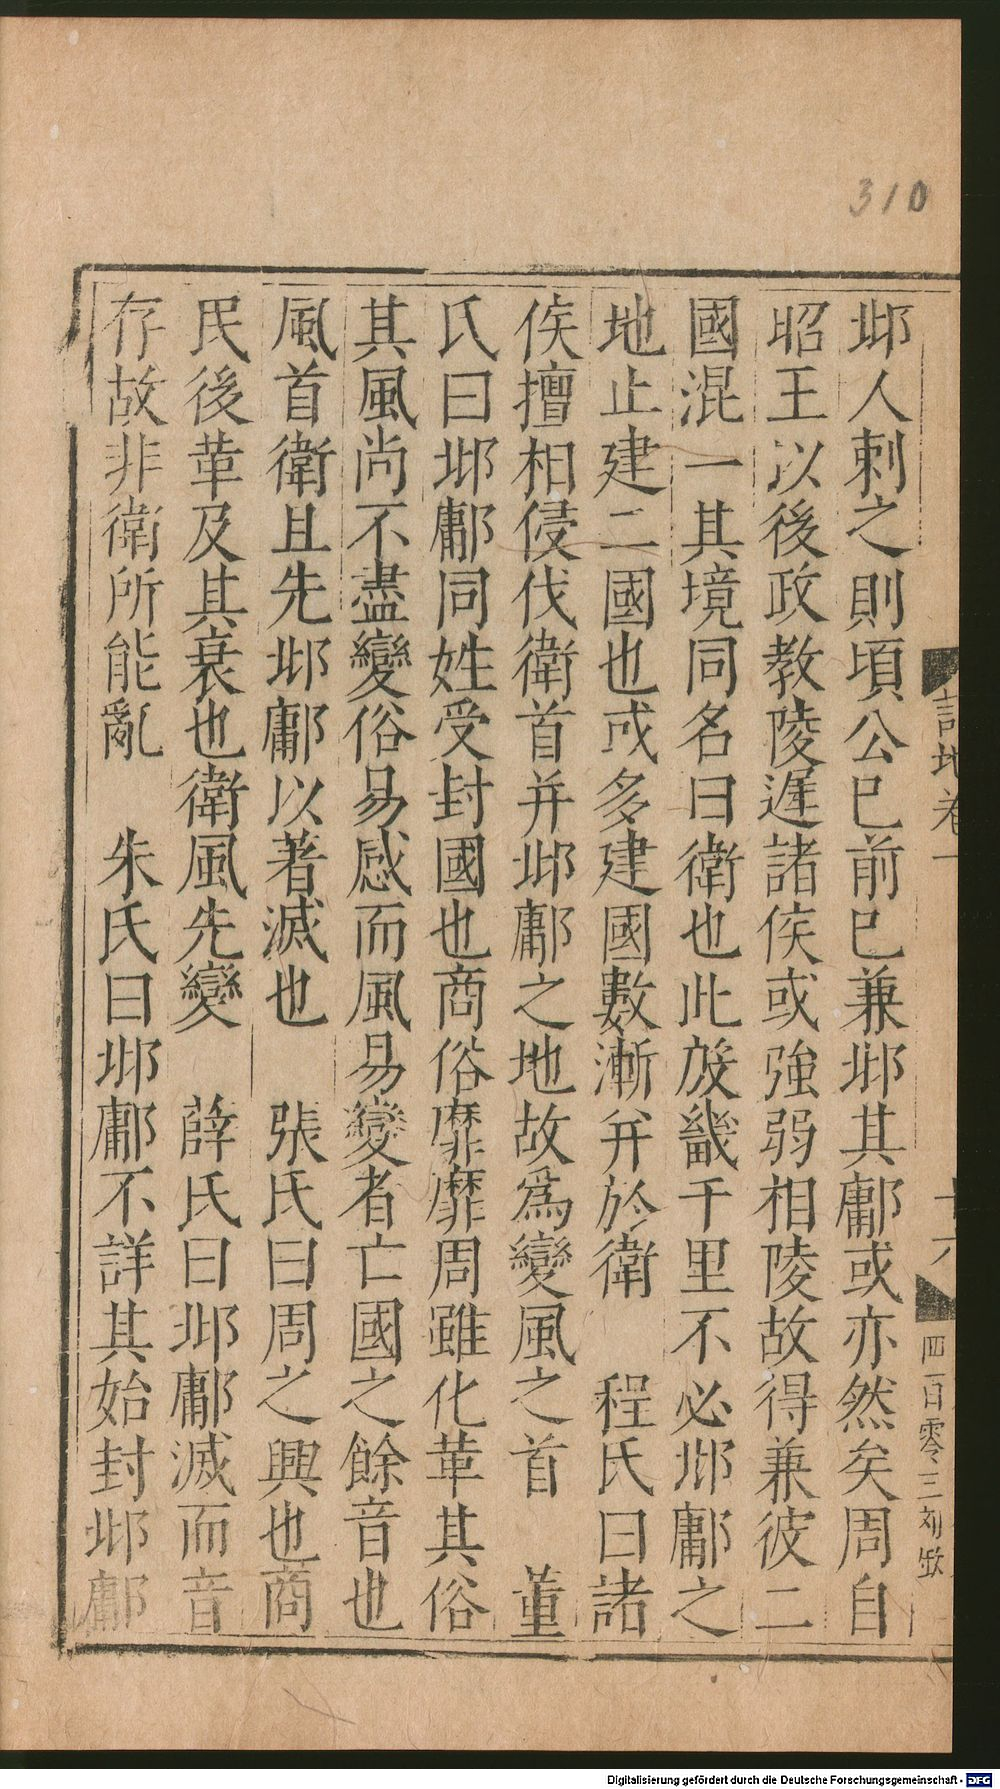 310
邶人刺之則頃公已前已兼邶其鄘或亦然矣周自
昭王以後政教陵遲諸侯或強弱相陵故得兼彼二
國混一其境同名曰衛也此殷畿千里不必邶鄘之
地止建二國也或多建國數漸并於衛　程氏曰諸
侯擅相侵伐衛首并邶鄘之地故為變風之首　董
氏曰邶鄘同姓受封國也商俗靡靡周雖化革其俗
其風尚不盡變俗易感而風易變者亡國之餘音也
風首衛且先邶鄘以著滅也　張氏曰周之興也商
民後革及其衰也衛風先變　薛氏曰邶鄘滅而音
存故非衛所能亂　朱氏曰邶鄘不詳其始封邶鄘
詩地卷一
十六
四百零三刘
Digitalisierung gefördert durch die Deutsche Forschungsgemeinschaft - DFG